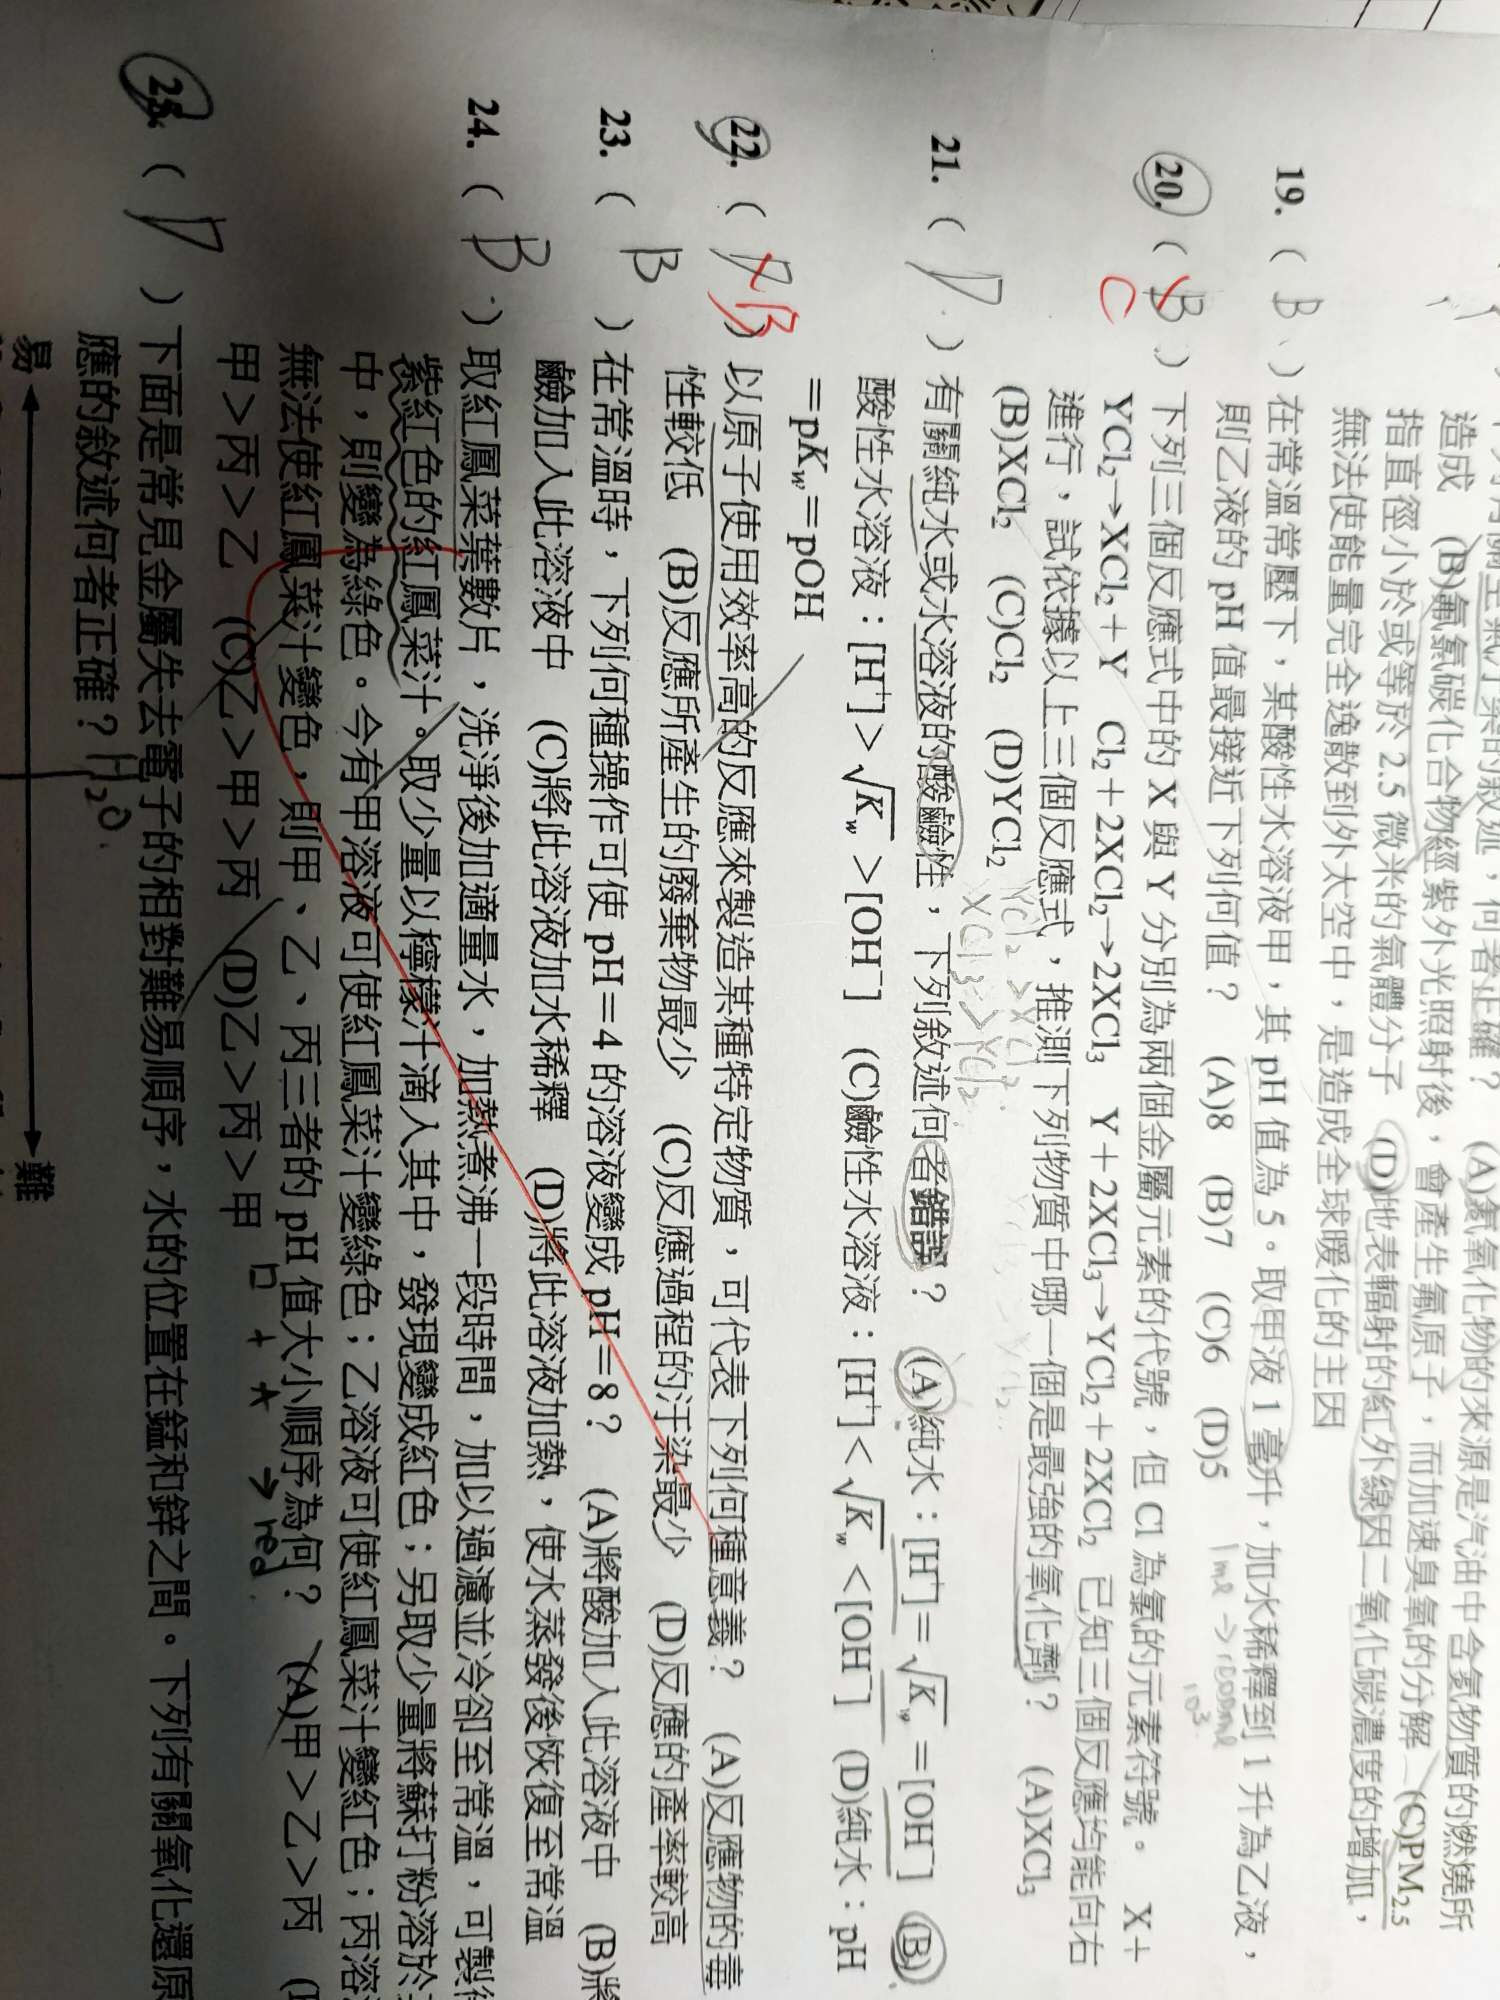 造成 (B)氟氯碳化合物經紫外光照射後，會產生氟原子，而加速臭氧的分解 (C)PM2.5
指直徑小於或等於 2.5 微米的氣體分子 (D)地表輻射的紅外線因二氧化碳濃度的增加，
無法使能量完全逸散到外太空中，是造成全球暖化的主因
19. ( B ) 在常溫常壓下，某酸性水溶液甲，其 pH 值為 5。取甲液 1 毫升，加水稀釋到 1 升為乙液，
則乙液的 pH 值最接近下列何值？ (A)8 (B)7 (C)6 (D)5
1ml → 1000ml
10³
20. ( B ) 下列三個反應式中的 X 與 Y 分別為兩個金屬元素的代號，但 Cl 為氯的元素符號。 X+
C
YCl₂→XCl₂+Y Cl₂+2XCl₂→2XCl₃ Y+2XCl₃→YCl₂+2XCl₂ 已知三個反應均能向右
進行，試依據以上三個反應式，推測下列物質中哪一個是最強的氧化劑？ (A)XCl₃
(B)XCl₂ (C)Cl₂ (D)YCl₂
YCl₂ > XCl₂
XCl₃ > XCl₂
21. ( D ) 有關純水或水溶液的酸鹼性，下列敘述何者錯誤？ (A)純水：[H⁺]=√Kw=[OH⁻] (B)
酸性水溶液：[H⁺]>√Kw>[OH⁻] (C)鹼性水溶液：[H⁺]<√Kw<[OH⁻] (D)純水：pH
=pKw=pOH
22. ( D B ) 以原子使用效率高的反應來製造某種特定物質，可代表下列何種意義？ (A)反應物的毒
性較低 (B)反應所產生的廢棄物最少 (C)反應過程的汙染最少 (D)反應的產率較高
23. ( B ) 在常溫時，下列何種操作可使 pH=4 的溶液變成 pH=8？ (A)將酸加入此溶液中 (B)將
鹼加入此溶液中 (C)將此溶液加水稀釋 (D)將此溶液加熱，使水蒸發後恢復至常溫
24. ( B ) 取紅鳳菜葉數片，洗淨後加適量水，加熱煮沸一段時間，加以過濾並冷卻至常溫，可製得
紫紅色的紅鳳菜汁。取少量以檸檬汁滴入其中，發現變成紅色；另取少量將蘇打粉溶於
中，則變為綠色。今有甲溶液可使紅鳳菜汁變綠色；乙溶液可使紅鳳菜汁變紅色；丙溶
無法使紅鳳菜汁變色，則甲、乙、丙三者的 pH 值大小順序為何？ (A)甲＞乙＞丙
甲＞丙＞乙 (C)乙＞甲＞丙 (D)乙＞丙＞甲
→ red
25. ( D ) 下面是常見金屬失去電子的相對難易順序，水的位置在錳和鋅之間。下列有關氧化還原
應的敘述何者正確？
H₂O
易 難